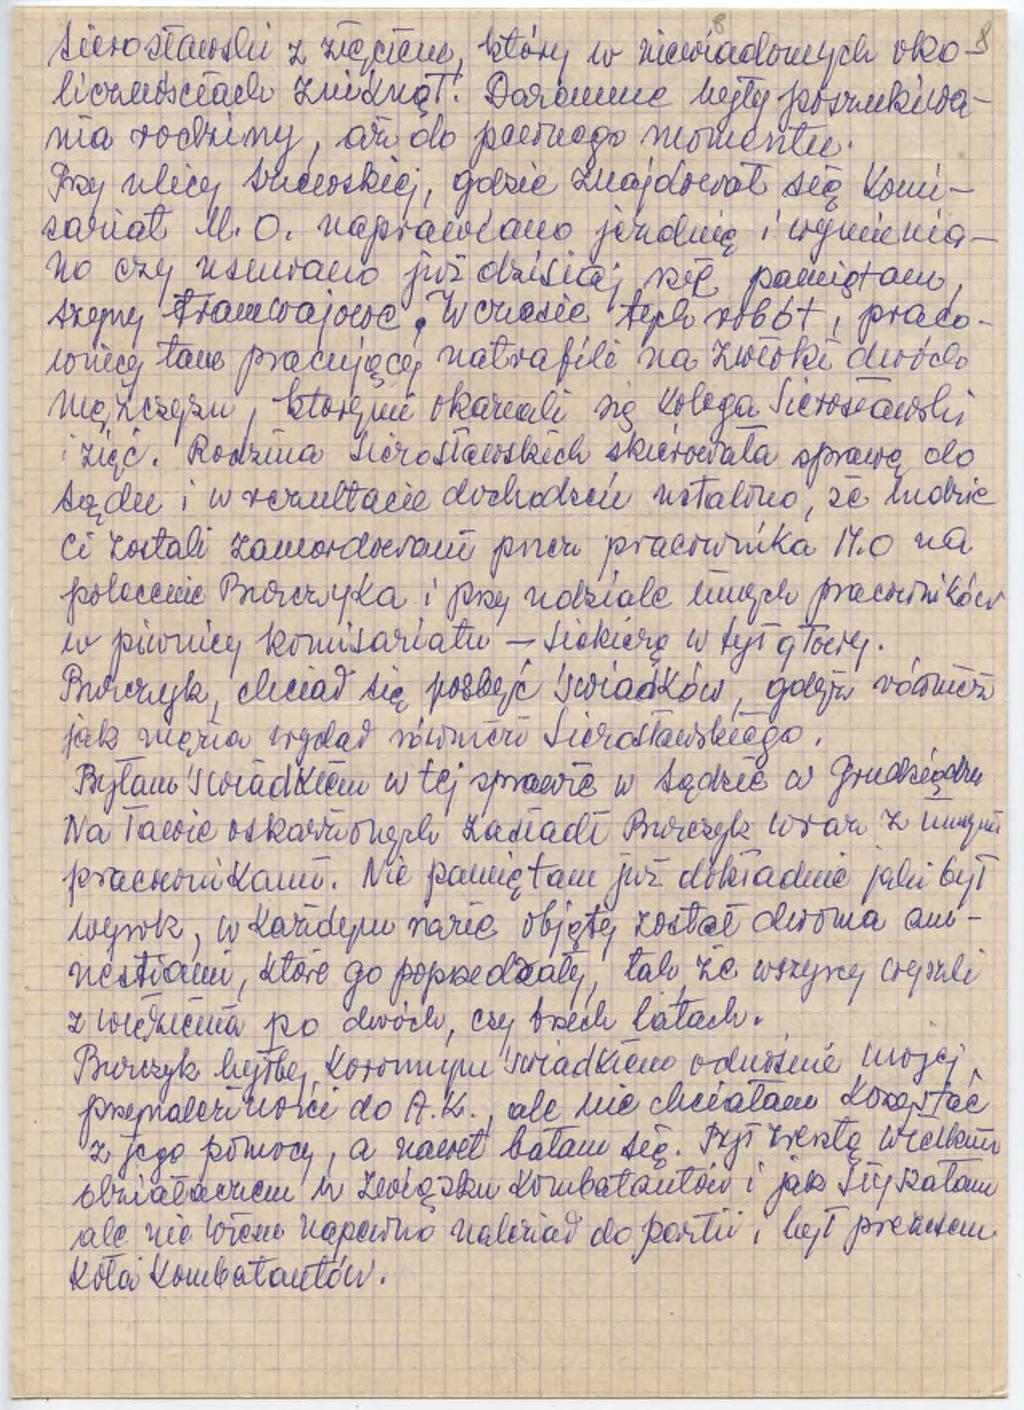 8
8
Sierosławski z zięciem, który w niewiadomych oko-
licznościach zniknął. Daremne były poszukiwa-
nia rodziny, aż do pewnego momentu.
Przy ulicy Szewskiej, gdzie znajdował się Komi-
sariat M.O. naprawiano jezdnię i wymienia-
no czy usuwano już dzisiaj nie pamiętam,
szyny tramwajowe. W czasie tych robót, praco-
wnicy tam pracujący natrafili na zwłoki dwóch
mężczyzn, którymi okazali się kolega Sierosławski
i zięć. Rodzina Sierosławskich skierowała sprawę do
sądu i w rezultacie dochodzeń ustalono, że ludzie
ci zostali zamordowani przez pracownika M.O na
polecenie Burczyka i przy udziale innych pracowników
w piwnicy komisariatu – siekierą w tył głowy.
Burczyk, chciał się pozbyć świadków, gdyż również
jak męża wydał również Sierosławskiego.
Byłam świadkiem w tej sprawie w Sądzie w Grudziądzu
Na ławie oskarżonych zasiadł Burczyk wraz z innymi
pracownikami. Nie pamiętam już dokładnie jaki był
wyrok, w każdym razie objęty został dwoma am-
nestiami, które go poprzedzały, tak, że wszyscy wyszli
z więzienia po dwóch, czy trzech latach.
Burczyk byłby koronnym świadkiem odnośnie mojej
przynależności do A.K., ale nie chciałam korzystać
z jego pomocy, a nawet bałam się. Był zresztą wielkim
działaczem w Związku Kombatantów i jak słyszałam
ale nie wiem napewno należał do partii i był prezesem
Koła Kombatantów.